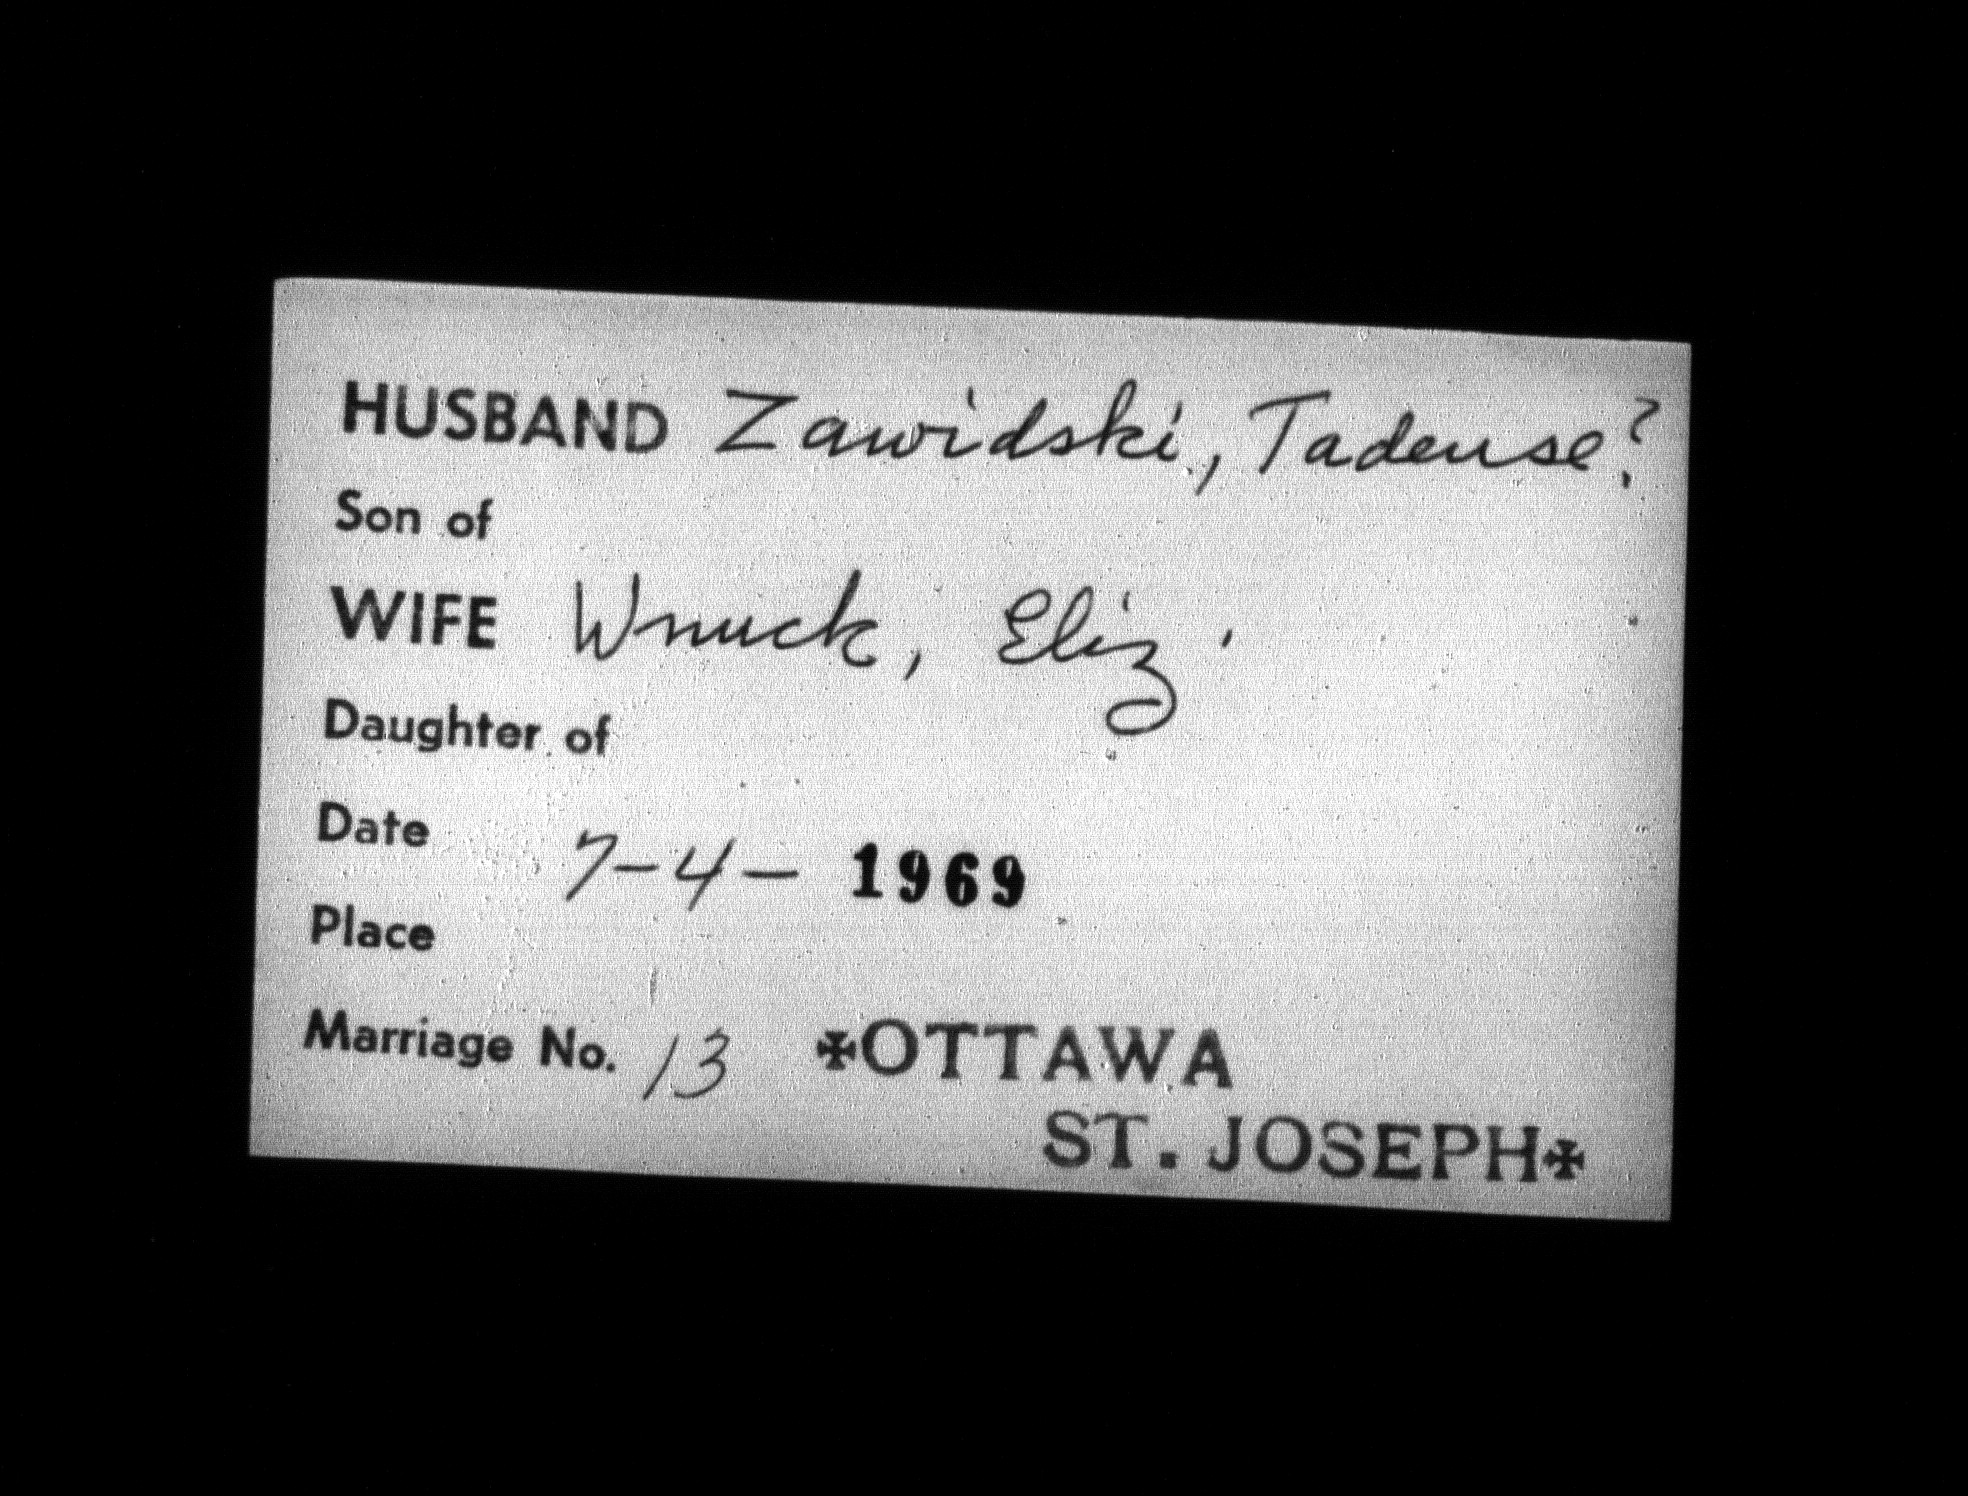 HUSBAND Zawidski, Tadeuse?
Son of
WIFE Wnuck, Eliz.
Daughter of
Date 7-4- 1969
Place
Marriage No. 13 ✠OTTAWA
ST. JOSEPH✠